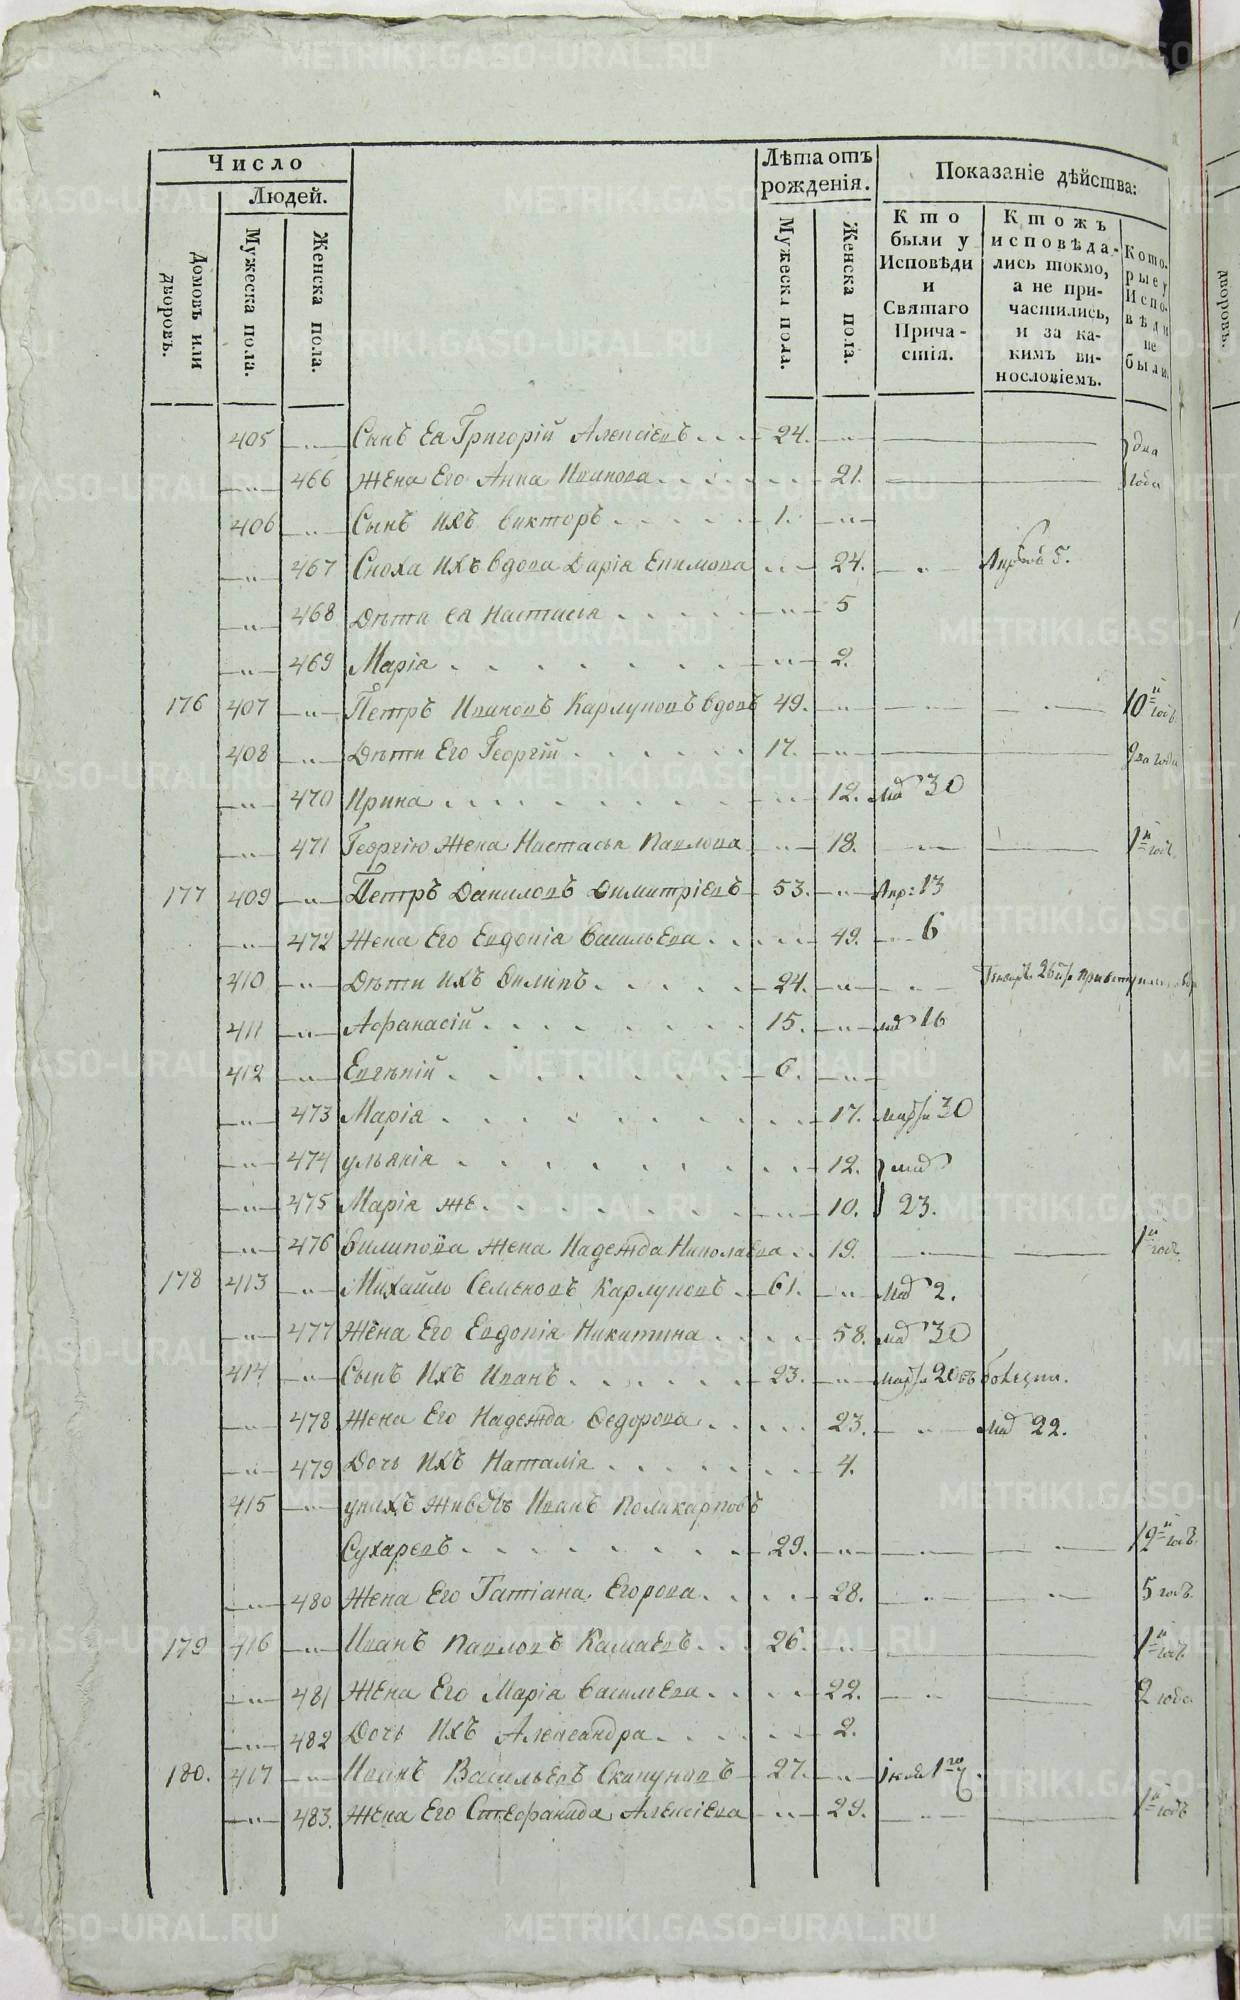 Число
Людей.
Домовъ или дворовъ.
Мужеска пола.
Женска пола.
Лѣта отъ рожденія.
Мужеска пола.
Женска пола.
Показаніе дѣйства:
Кто были у Исповѣди и Святаго Прича-стія.
Ктожъ исповѣда-лись токмо, а не при-частились, и за ка-кимъ ви-нословіемъ.
Кото-рые у Испо-вѣди не были.
дворовъ.
405 —"— Сынъ Ея Григорій Алексіевъ 24. —"— два
—"— 466 Жена Его Анна Иванова 21. года
406 —"— Сынъ ихъ Викторъ 1. —"—
—"— 467 Сноха ихъ вдова Дарія Ефимова —"— 24. —"— 5.
—"— 468 Дѣти ея Настасья —"— 5
—"— 469 Марія —"— 2.
176 407 —"— Петръ Ивановъ Карлуповъ вдовъ 49. —"— —"— —"— 10й годъ
408 —"— Дѣти Его Георгій 17. —"— два года
—"— 470 Ирина —"— 12. 30
—"— 471 Георгію Жена Настасья Павлова —"— 18. —"— 1й годъ
177 409 —"— Петръ Даниловъ Димитріевъ 53. —"— Апр: 13
—"— 472 Жена Его Евдокія Васильева 49. 6
410 —"— Дѣти ихъ Филипъ 24. —"— —"— 26
411 —"— Афанасій 15. —"— 16
412 —"— Евгѣній 6. —"—
—"— 473 Марія 17. 30
—"— 474 Ульянія 12.
—"— 475 Марія же —"— 10. 23.
—"— 476 Филипова Жена Надежда Николаева 19. —"— 1й годъ
178 413 —"— Михайло Семеновъ Карлуповъ 61. —"— 2.
—"— 477 Жена Его Евдокія Никитина 58. 30
414 —"— Сынъ ихъ Иванъ 23. —"— 20 въ болезни.
—"— 478 Жена Его Надежда Федорова 23. —"— 22.
—"— 479 Дочь ихъ Наталія 4.
415 —"— у нихъ живетъ Иванъ Поликарповъ
Сухаревъ 29. —"— —"— —"— 19й годъ.
—"— 480 Жена Его Татіана Егорова 28. —"— —"— 5 годъ
179 416 —"— Иванъ Павловъ Камаевъ 26. —"— 1й годъ
—"— 481 Жена Его Марія Васильева 22. —"— 2 года
—"— 482 Дочь ихъ Александра 2.
180. 417 —"— Иванъ Васильевъ Скапуновъ 27. —"— 1го
—"— 483. Жена Его Стефанида Алексіева —"— 29. —"— 1й годъ
METRIKI.GASO-URAL.RU